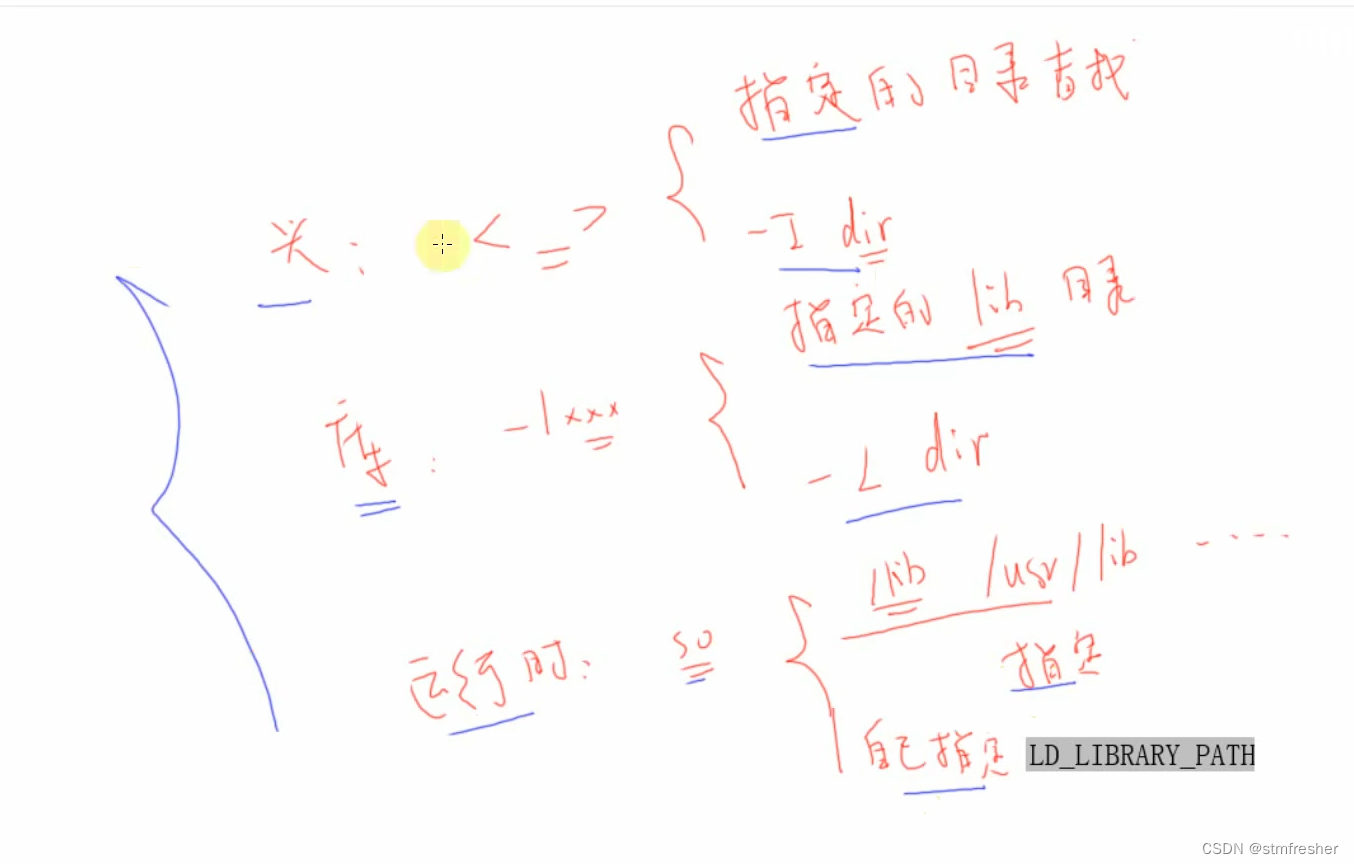 指定的目录查找
头: < >
-I dir
指定的 lib 目录
库: -lxxx
-L dir
/lib /usr/lib ·····
运行时: so
指定
自己指定 LD_LIBRARY_PATH
CSDN @stmfresher